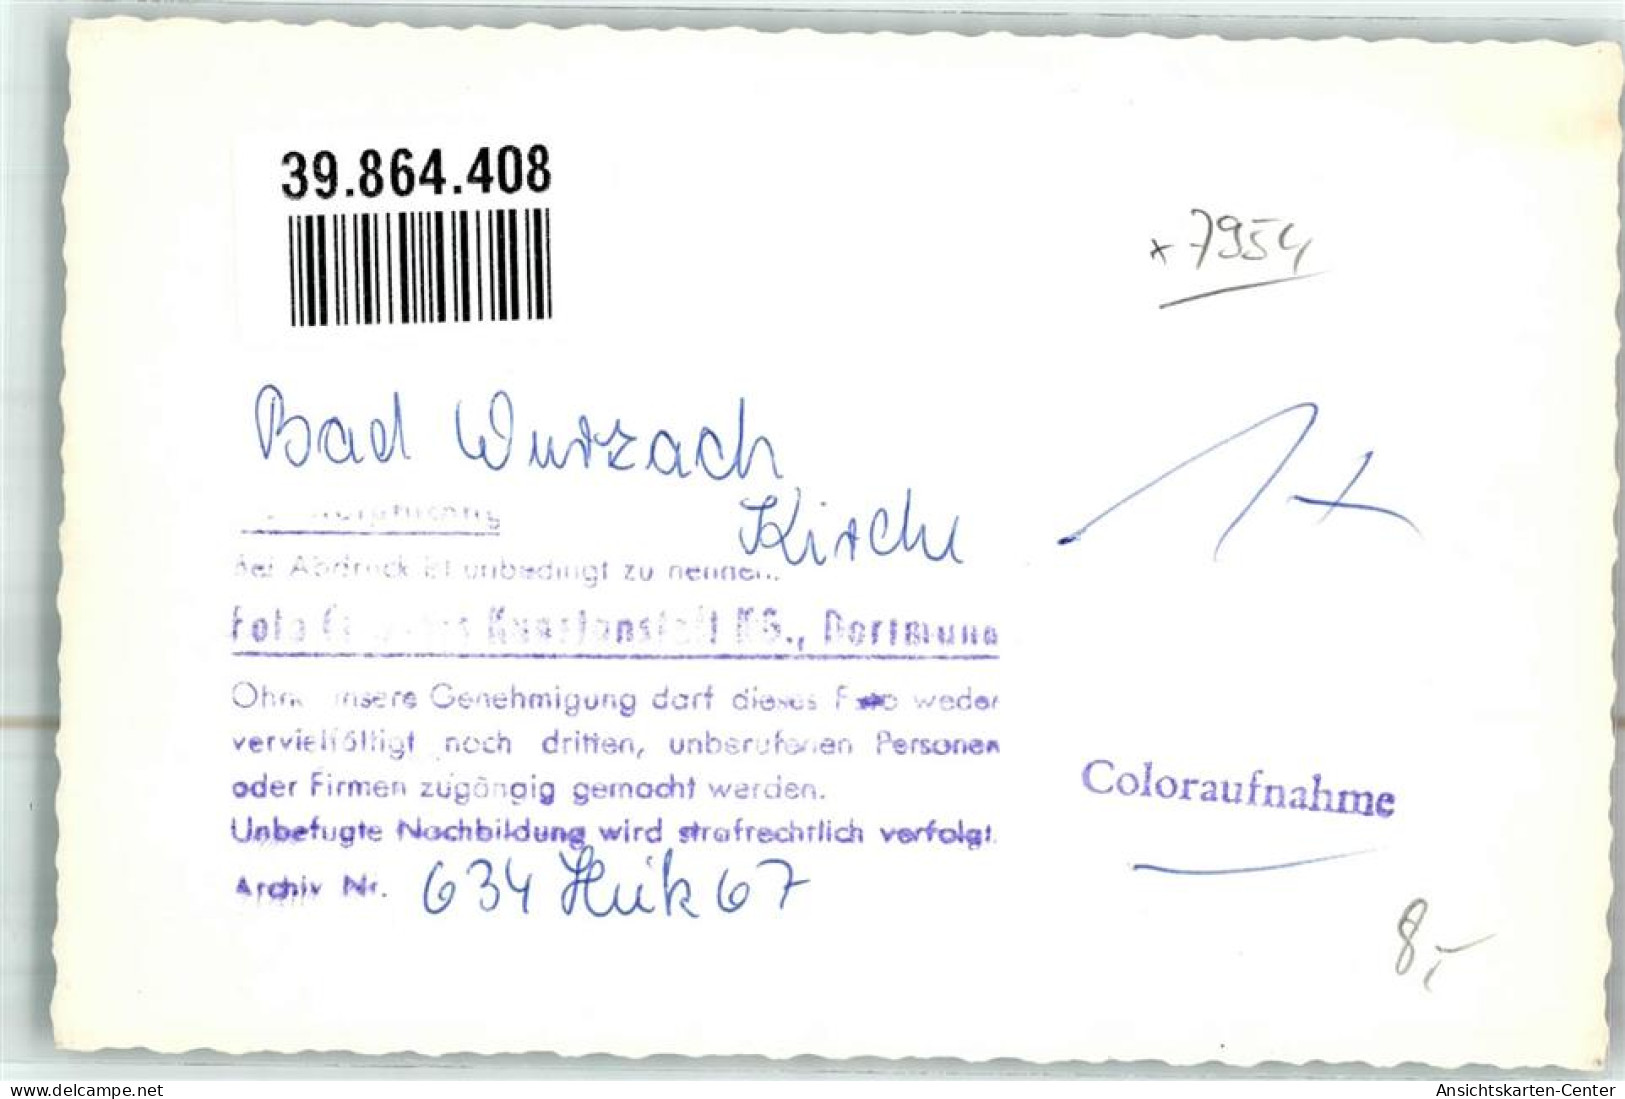 39.864.408
* 7954
Bad Wurzach
Kirche
1+
Bei Abdruck ist unbedingt zu nennen:
Foto Kunstanstalt KG., Dortmund
Ohne unsere Genehmigung darf dieses Foto weder
vervielfältigt noch dritten, unberufenen Personen
oder Firmen zugängig gemacht werden.
Unbefugte Nachbildung wird strafrechtlich verfolgt.
Archiv Nr. 634 67
Coloraufnahme
8,-
delcampe.net
Ansichtskarten-Center